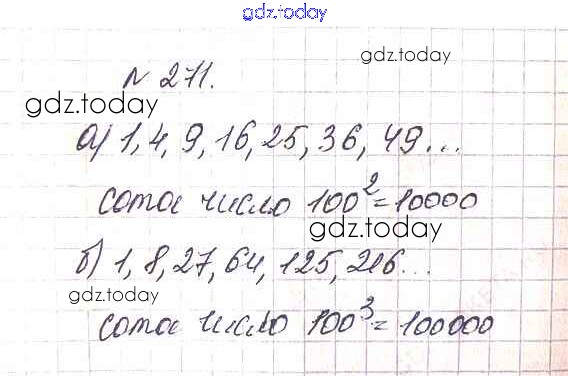 gdz.today
gdz.today
№ 271.
gdz.today
а) 1, 4, 9, 16, 25, 36, 49...
сота число 100² = 10000
gdz.today
б) 1, 8, 27, 64, 125, 216...
gdz.today
сота число 100³ = 100000